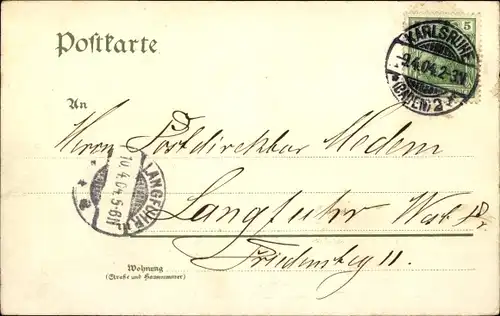 Postkarte
5
KARLSRUHE
9.4.04.2-3N
*(BADEN)2*
An
Herrn Postdirektor Medem
LANGFUHR
10.4.04.5-6N
Langfuhr
Friedensteg 11.
Wohnung
(Straße und Hausnummer)